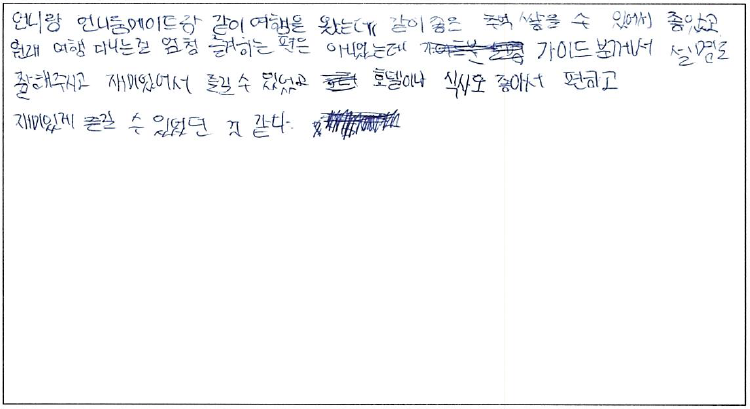 언니랑 언니룸메이트랑 같이 여행을 왔는데 같이 좋은 추억 쌓을 수 있어서 좋았고
원래 여행 다니는걸 엄청 즐겨하는 편은 아니었는데 가이드분께서 설명도
잘해주시고 재미있어서 즐길 수 있었고 호텔이나 식사도 좋아서 편하고
재미있게 즐길 수 있었던 것 같다.